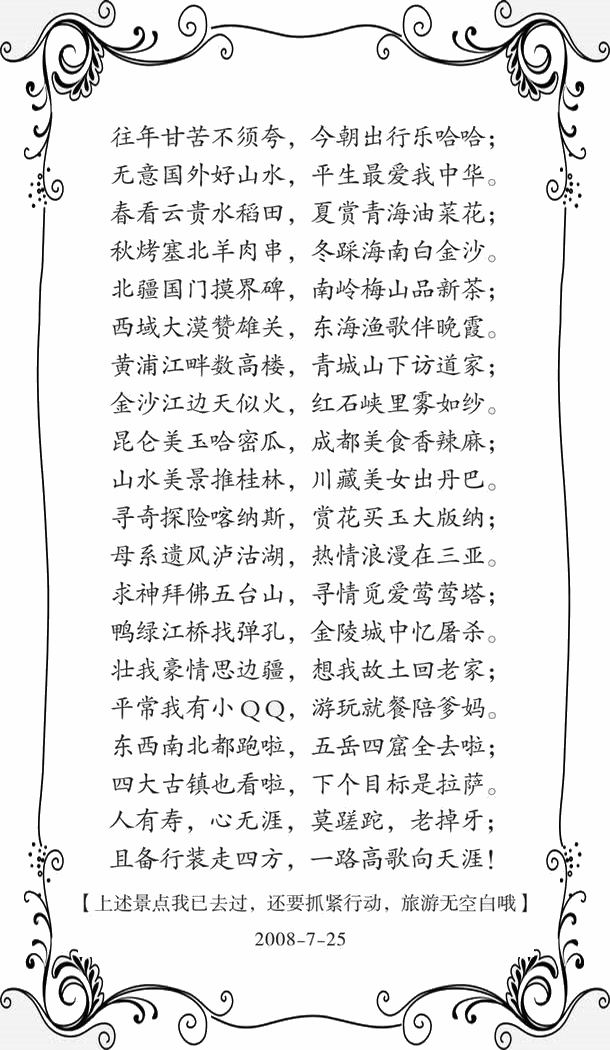 往年甘苦不须夸，今朝出行乐哈哈；
无意国外好山水，平生最爱我中华。
春看云贵水稻田，夏赏青海油菜花；
秋烤塞北羊肉串，冬踩海南白金沙。
北疆国门摸界碑，南岭梅山品新茶；
西域大漠赞雄关，东海渔歌伴晚霞。
黄浦江畔数高楼，青城山下访道家；
金沙江边天似火，红石峡里雾如纱。
昆仑美玉哈密瓜，成都美食香辣麻；
山水美景推桂林，川藏美女出丹巴。
寻奇探险喀纳斯，赏花买玉大版纳；
母系遗风泸沽湖，热情浪漫在三亚。
求神拜佛五台山，寻情觅爱莺莺塔；
鸭绿江桥找弹孔，金陵城中忆屠杀。
壮我豪情思边疆，想我故土回老家；
平常我有小QQ，游玩就餐陪爹妈。
东西南北都跑啦，五岳四窟全去啦；
四大古镇也看啦，下个目标是拉萨。
人有寿，心无涯，莫蹉跎，老掉牙；
且备行装走四方，一路高歌向天涯！
【上述景点我已去过，还要抓紧行动，旅游无空白哦】
2008-7-25